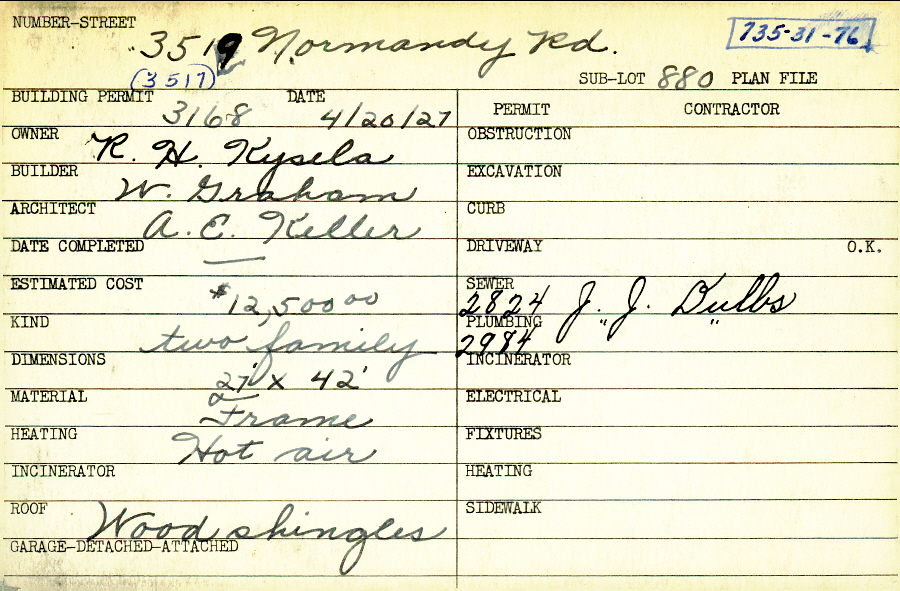 NUMBER-STREET
3519 Normandy Rd.
735-31-76
(3517)
SUB-LOT 880 PLAN FILE
BUILDING PERMIT 3168 DATE 4/20/27
PERMIT CONTRACTOR
OWNER R. H. Kysela
OBSTRUCTION
BUILDER W. Graham
EXCAVATION
ARCHITECT A. E. Keller
CURB
DATE COMPLETED —
DRIVEWAY O.K.
ESTIMATED COST $12,500 00
SEWER 2824 J. J. Dulbs
KIND two family
PLUMBING 2984 " "
DIMENSIONS 27' x 42'
INCINERATOR
MATERIAL Frame
ELECTRICAL
HEATING Hot air
FIXTURES
INCINERATOR
HEATING
ROOF Wood shingles
SIDEWALK
GARAGE-DETACHED-ATTACHED